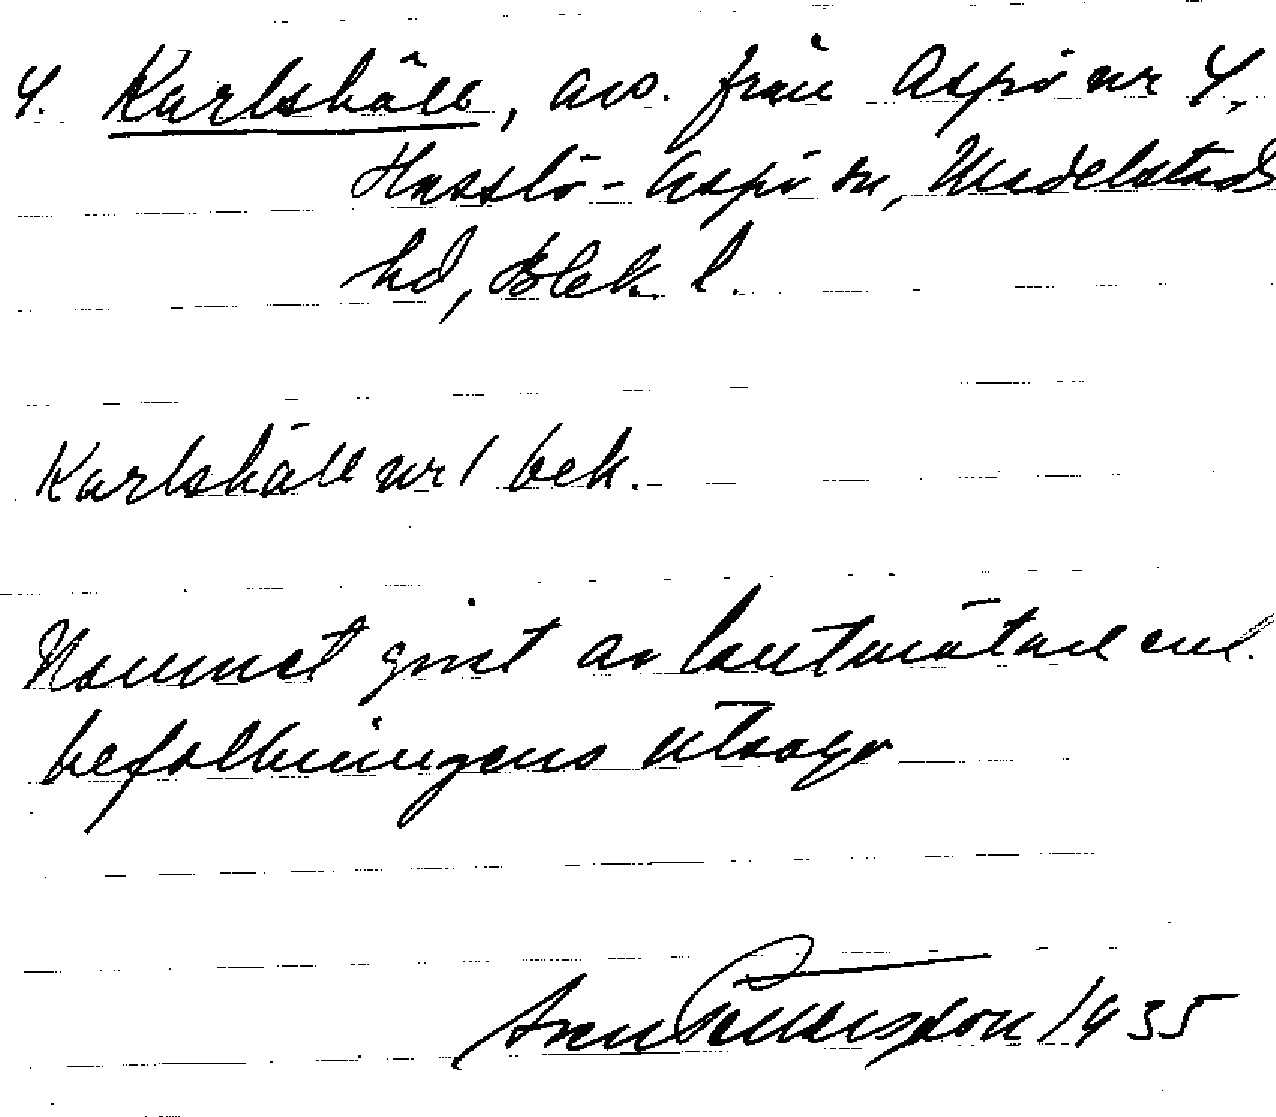 4. Karlshäll, avs. från Aspö nr 4,
Hasslö-Aspö sn, Medelstads
hd, Blek. l.
Karlshäll nr 1 bek.
Namnet givet av lantmätare enl.
befolkningens utsago
Sven Pettersson 1935